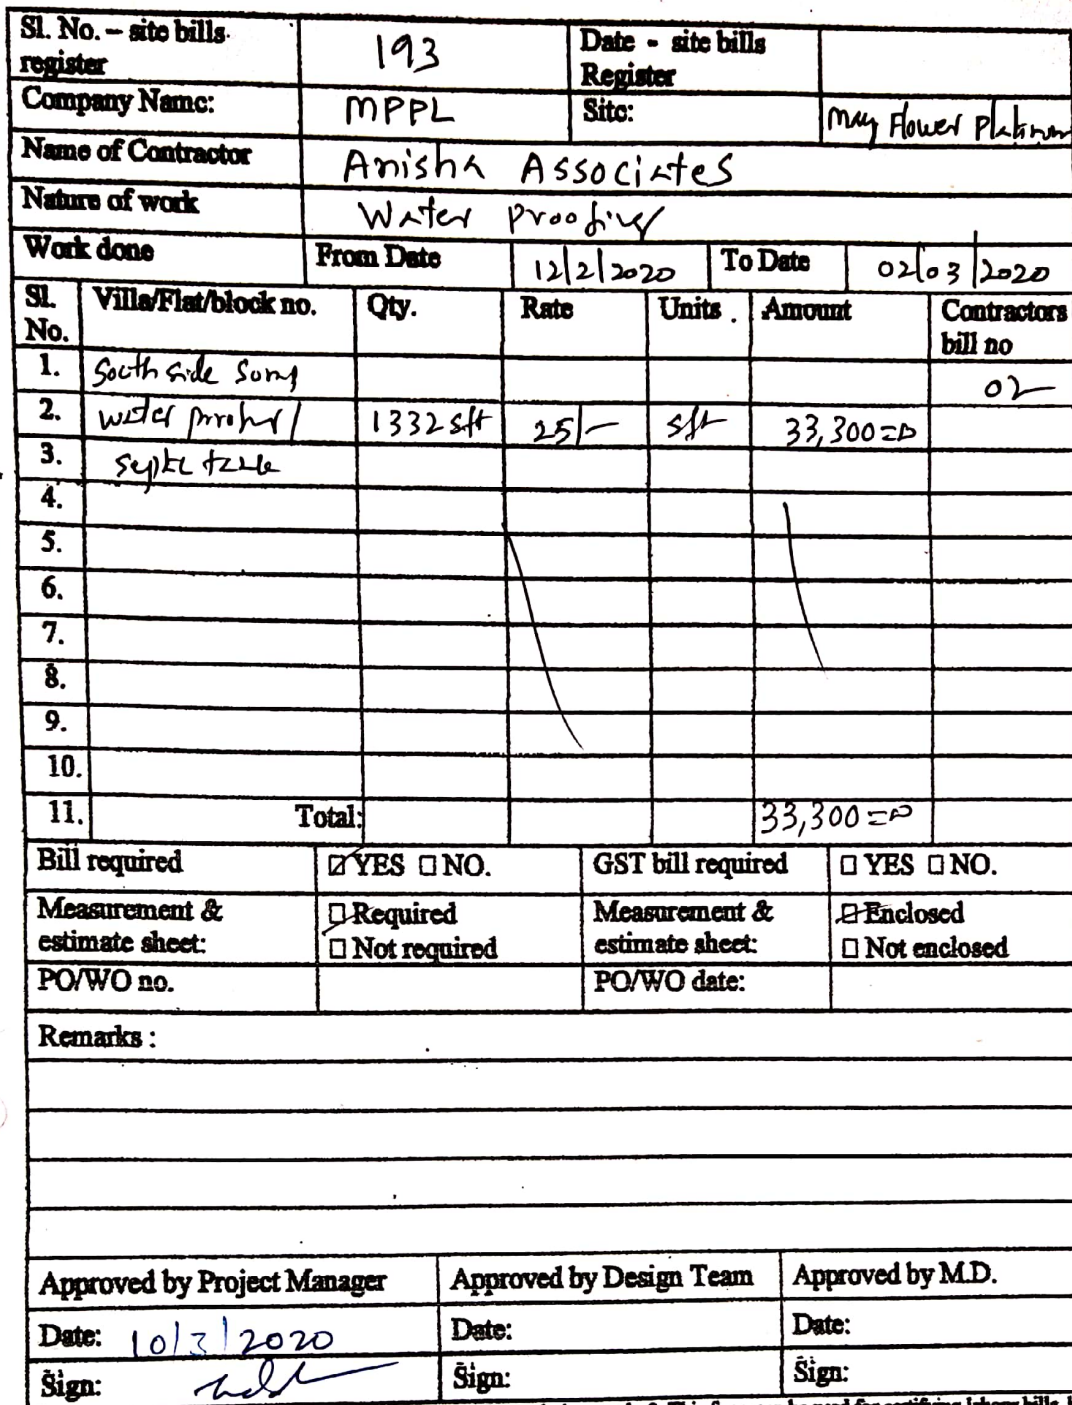 Sl. No. – site bills register 193 Date - site bills Register
Company Name: MPPL Site: May Flower Platinum
Name of Contractor Anisha Associates
Nature of work Water Proofing
Work done From Date 12/2/2020 To Date 02/03/2020
Sl. No. Villa/Flat/block no. Qty. Rate Units . Amount Contractors bill no
1. South side Sump 02
2. water 1332 sft 25/- sft 33,300=00
3. septic
4.
5.
6.
7.
8.
9.
10.
11. Total: 33,300=00
Bill required ☑ YES ☐ NO. GST bill required ☐ YES ☐ NO.
Measurement & estimate sheet: ☑ Required ☐ Not required Measurement & estimate sheet: ☑ Enclosed ☐ Not enclosed
PO/WO no. PO/WO date:
Remarks :
Approved by Project Manager Approved by Design Team Approved by M.D.
Date: 10/3/2020 Date: Date:
Sign: Sign: Sign: